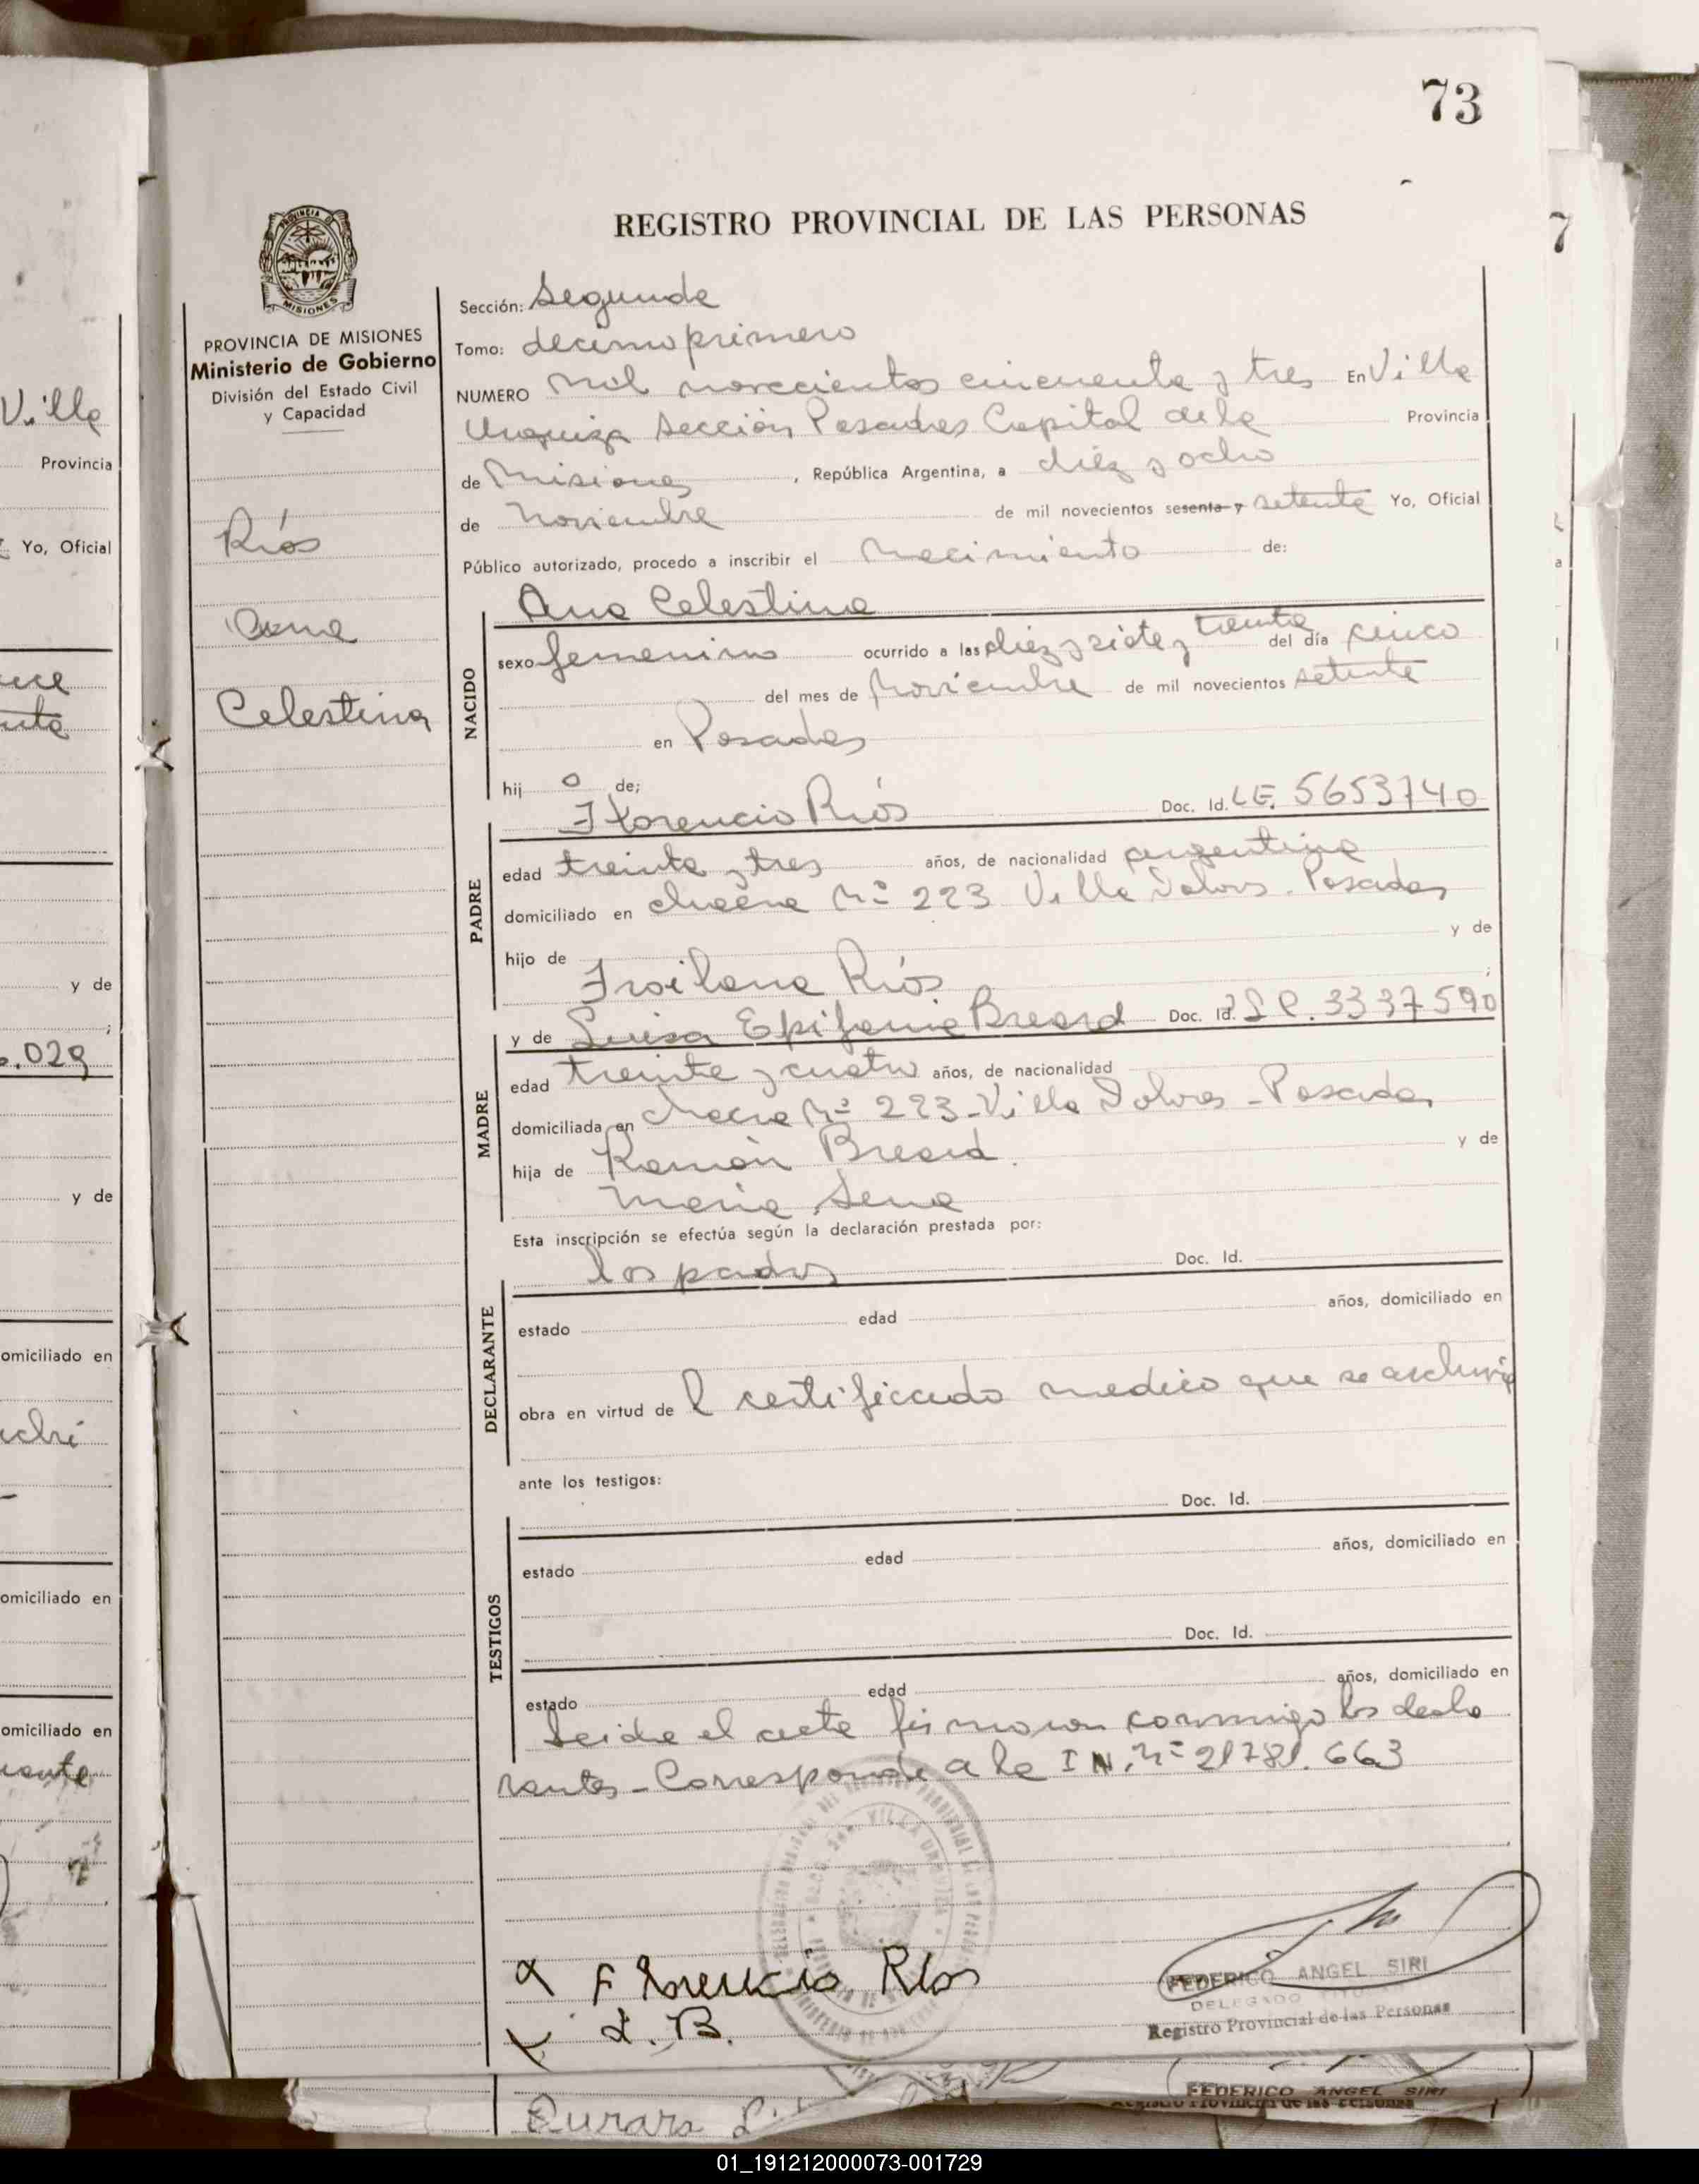 73
REGISTRO PROVINCIAL DE LAS PERSONAS
PROVINCIA DE MISIONES
Ministerio de Gobierno
División del Estado Civil
y Capacidad
Ríos
Ana
Celestina
Sección: Segunda
Tomo: decimo primero
NUMERO mil novecientos cincuenta y tres En Villa
Urquiza Sección Posadas Capital de la Provincia
de Misiones, República Argentina, a diez y ocho
de Noviembre de mil novecientos sesenta y setenta Yo, Oficial
Público autorizado, procedo a inscribir el Nacimiento de:
Ana Celestina
NACIDO
sexo femenino ocurrido a las diez y siete y treinta del día cinco
del mes de Noviembre de mil novecientos setenta
en Posadas
hij a de;
Florencio Ríos Doc. Id. L.E. 5653740
PADRE
edad treinta y tres años, de nacionalidad argentina
domiciliado en chacra Nº 223 Villa Dolores - Posadas
hijo de y de
Froilana Ríos ;
y de Luisa Epifania Breard Doc. Id. L.C. 3337590
MADRE
edad treinta y cuatro años, de nacionalidad
domiciliada en chacra Nº 223 - Villa Dolores - Posadas
hija de Ramón Breard. y de
María Sena
Esta inscripción se efectúa según la declaración prestada por:
los padres Doc. Id.
DECLARANTE
estado edad años, domiciliado en
obra en virtud de l certificado medico que se archiva
ante los testigos:
Doc. Id.
TESTIGOS
estado edad años, domiciliado en
Doc. Id.
estado edad años, domiciliado en
Leida el acta firmaron conmigo los decla
rantes - Corresponde a la I N. Nº 21781.663
Florencio Rios
L. B.
FEDERICO ANGEL SIRI
DELEGADO TITULAR
Registro Provincial de las Personas
FEDERICO ANGEL SIRI
Registro Provincial de las Personas
Villa
Provincia
Yo, Oficial
y de
.029
y de
omiciliado en
omiciliado en
omiciliado en
7
01_191212000073-001729